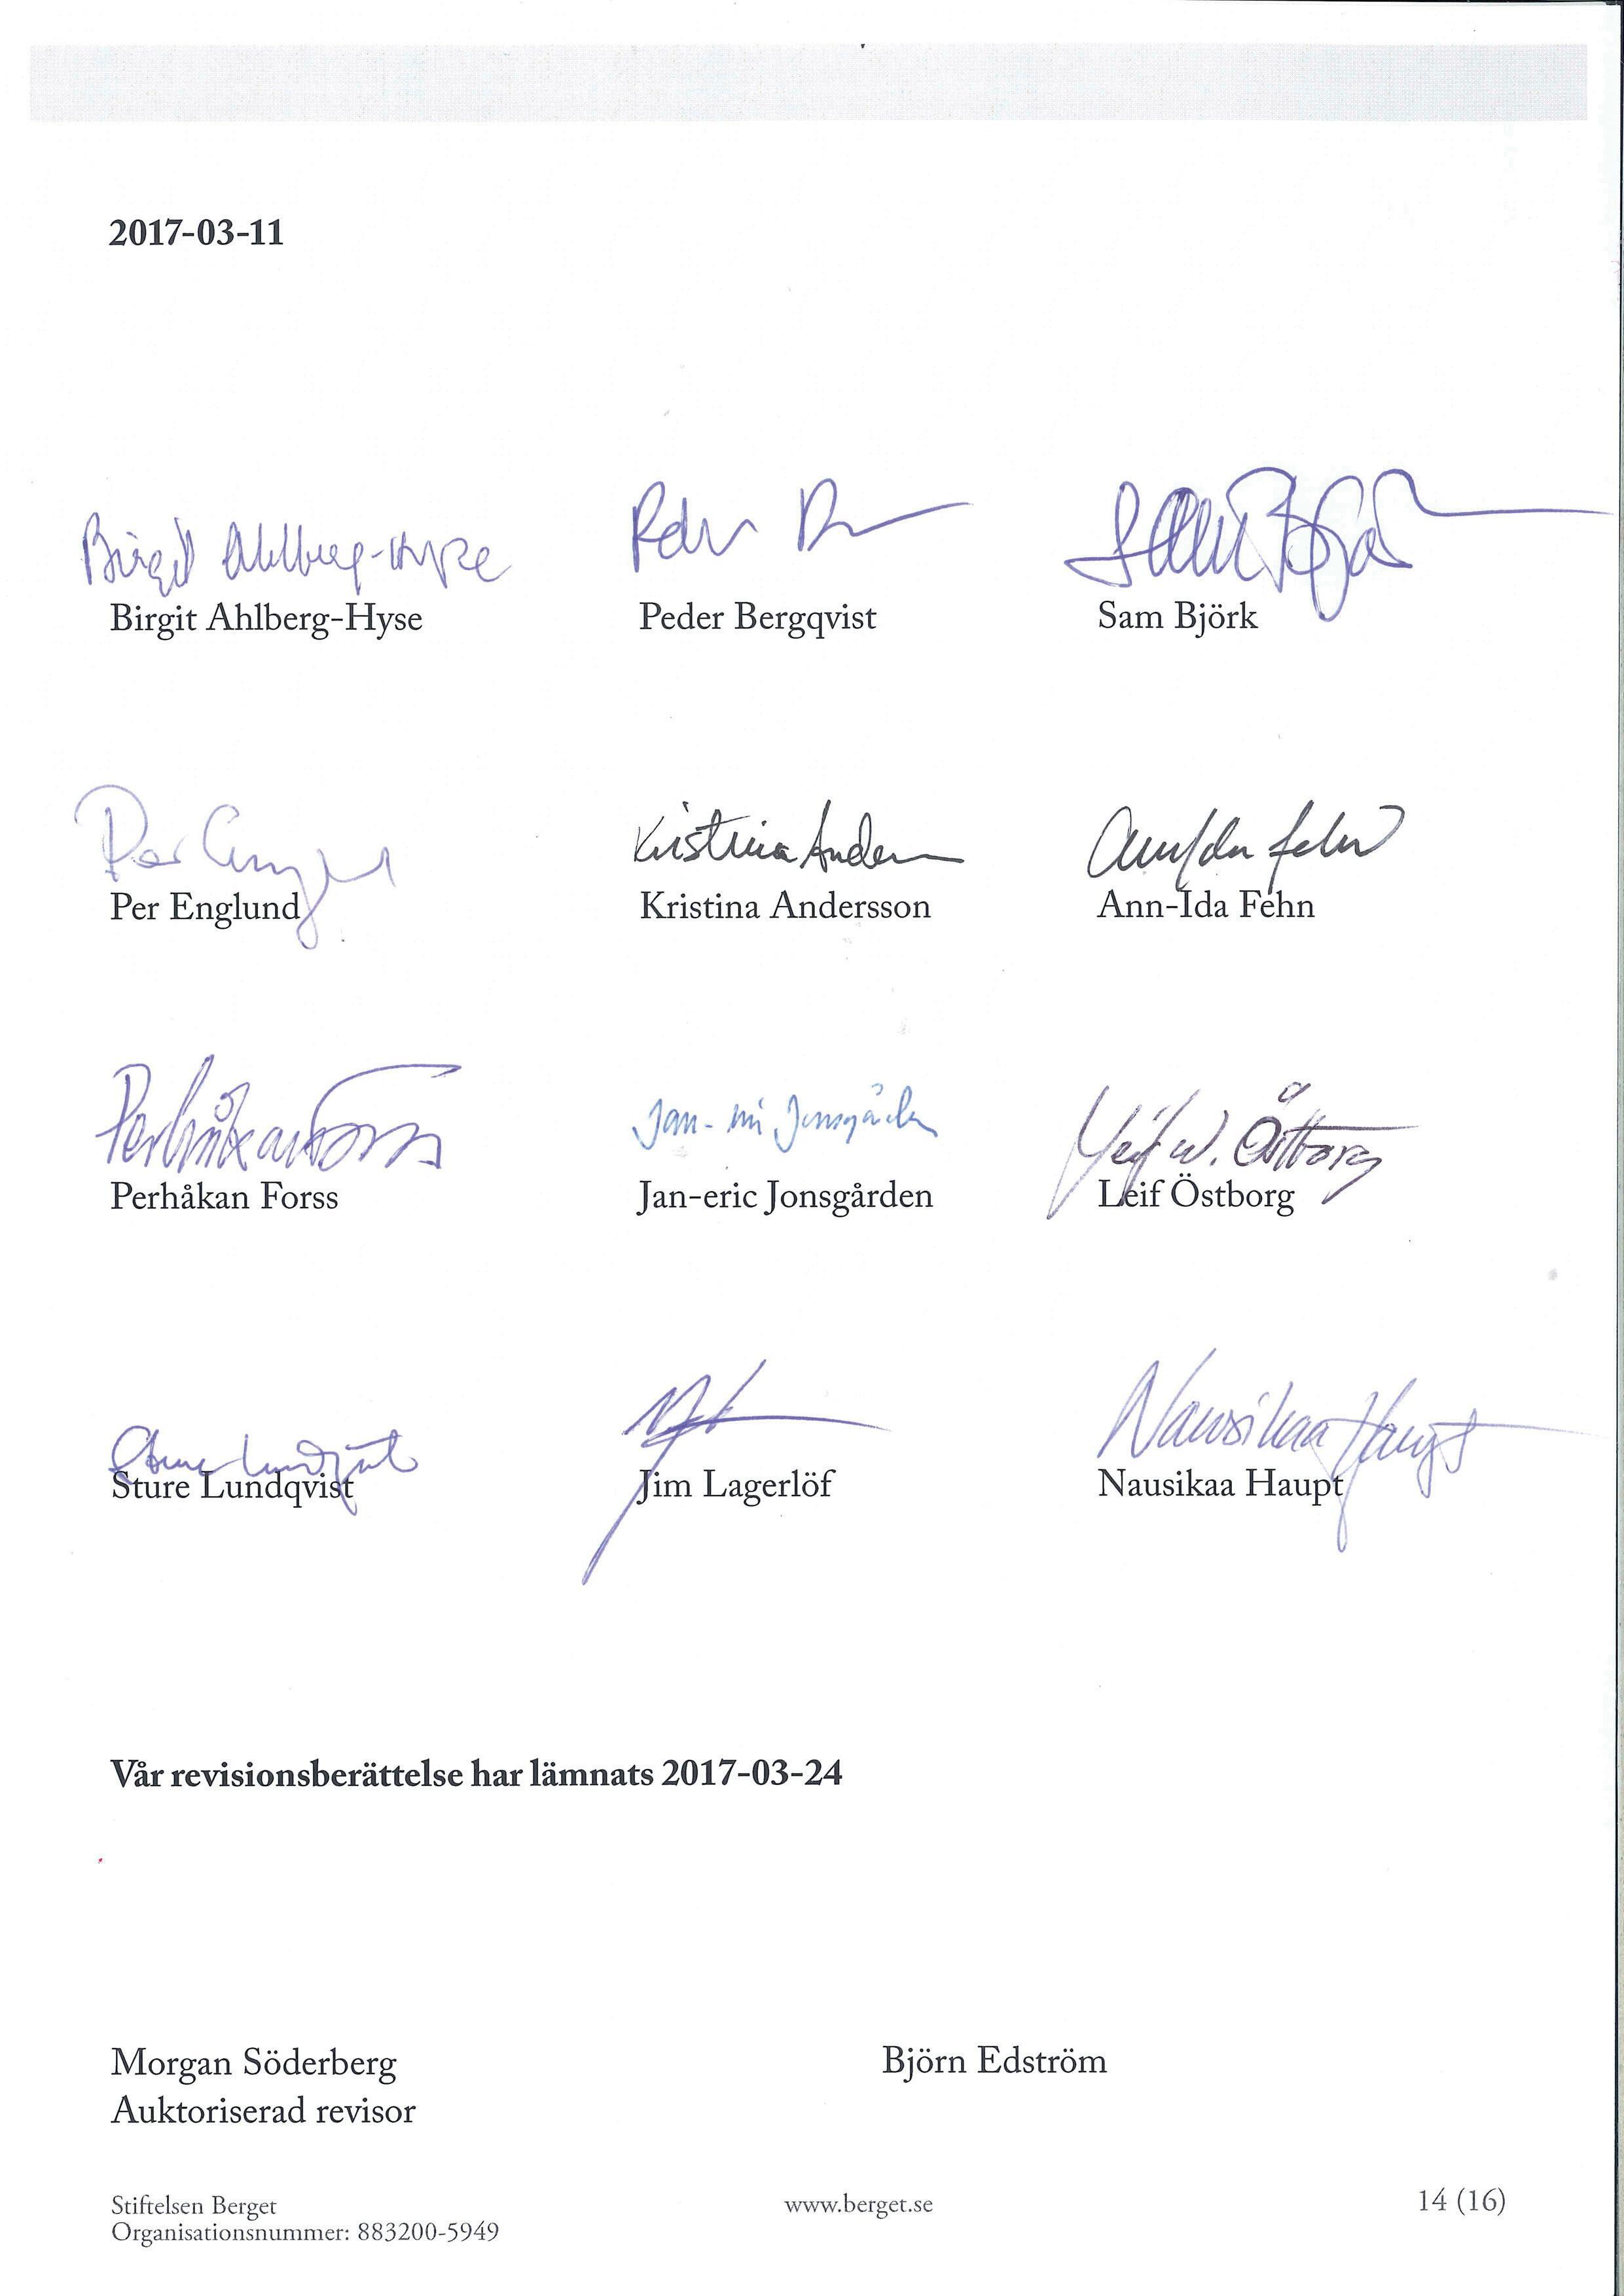 2017-03-11
Birgit Ahlberg-Hyse
Birgit Ahlberg-Hyse
Peder Bergqvist
Sam Björk
Sam Björk
Per Englund
Kristina Andersson
Ann-Ida Fehn
Perhåkan Forss
Perhåkan Forss
Jan-eric Jonsgården
Leif W. Östborg
Leif Östborg
Sture Lundqvist
Sture Lundqvist
Jim Lagerlöf
Nausikaa Haupt
Nausikaa Haupt
Vår revisionsberättelse har lämnats 2017-03-24
Morgan Söderberg
Auktoriserad revisor
Björn Edström
Stiftelsen Berget
Organisationsnummer: 883200-5949
www.berget.se
14 (16)